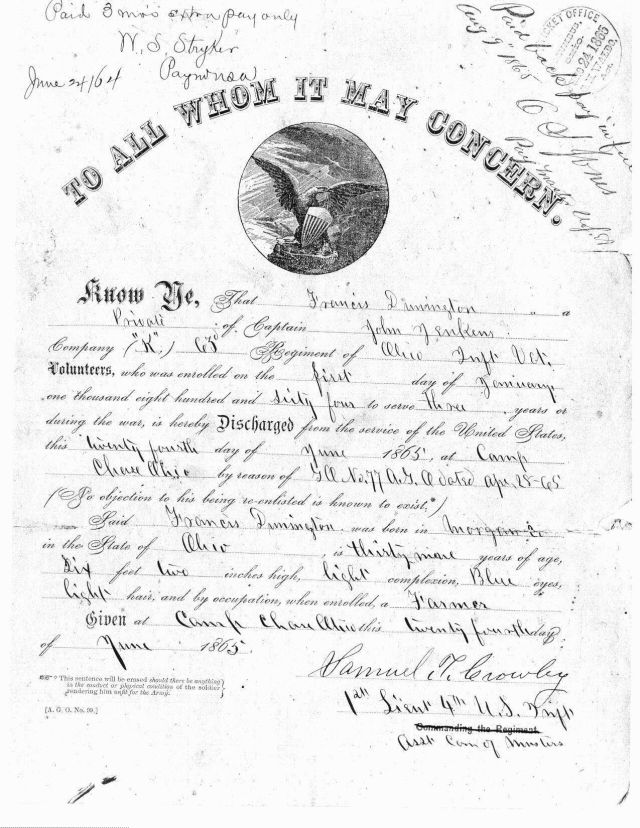 Paid 3 mos extra pay only
W. S. Stryker
Paymr USA
June 24/64
Paid back pay in full
Aug 9" 1865
TICKET OFFICE
24 1865
TO ALL WHOM IT MAY CONCERN.
Know Ye, That Francis Dunington a
Private of Captain John Jenkens
Company ("K",) 63d Regiment of Ohio Inft Vet.
Volunteers, who was enrolled on the first day of January
one thousand eight hundred and sixty four to serve three years or
during the war, is hereby Discharged from the service of the United States,
this twenty fourth day of June 1865, at Camp
Chase Ohio by reason of G.O. No. 77 A.G.O dated Apr. 28-65
(No objection to his being re-enlisted is known to exist.*)
Said Francis Dunington was born in Morgan Co
in the State of Ohio, is thirty years of age,
Six feet two inches high, light complexion, Blue eyes,
light hair, and by occupation, when enrolled, a Farmer
Given at Camp Chase Ohio this twenty fourth day
of June 1865
Samuel T. Crowley
1st Lieut 4th U.S. Inft
Commanding the Regiment.
Asst Com of Musters
* This sentence will be erased should there be anything
in the conduct or physical condition of the soldier
rendering him unfit for the Army.
[A. G. O. No. 99.]